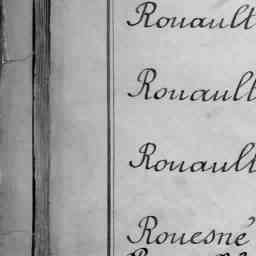 Rouault
Rouault
Rouault
Rouesné